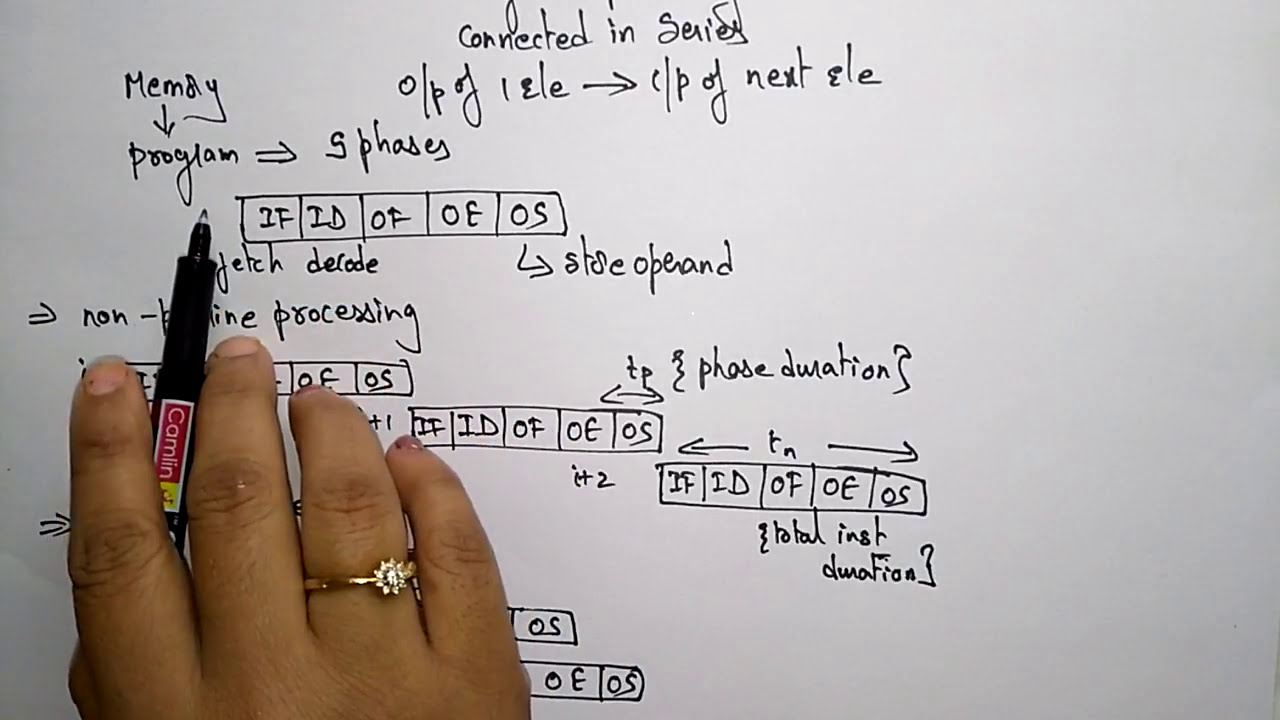 connected in series
o/p of 1 ele → i/p of next ele
Memory
↓
program ⇒ 5 phases
IF ID OF OE OS
fetch decode ↳ store operand
⇒ non - line processing
OE OS
tp { phase duration}
+1 IF ID OF OE OS
← tn →
i+2 IF ID OF OE OS
{total inst
duration}
⇒
OS
OE OS
Camlin